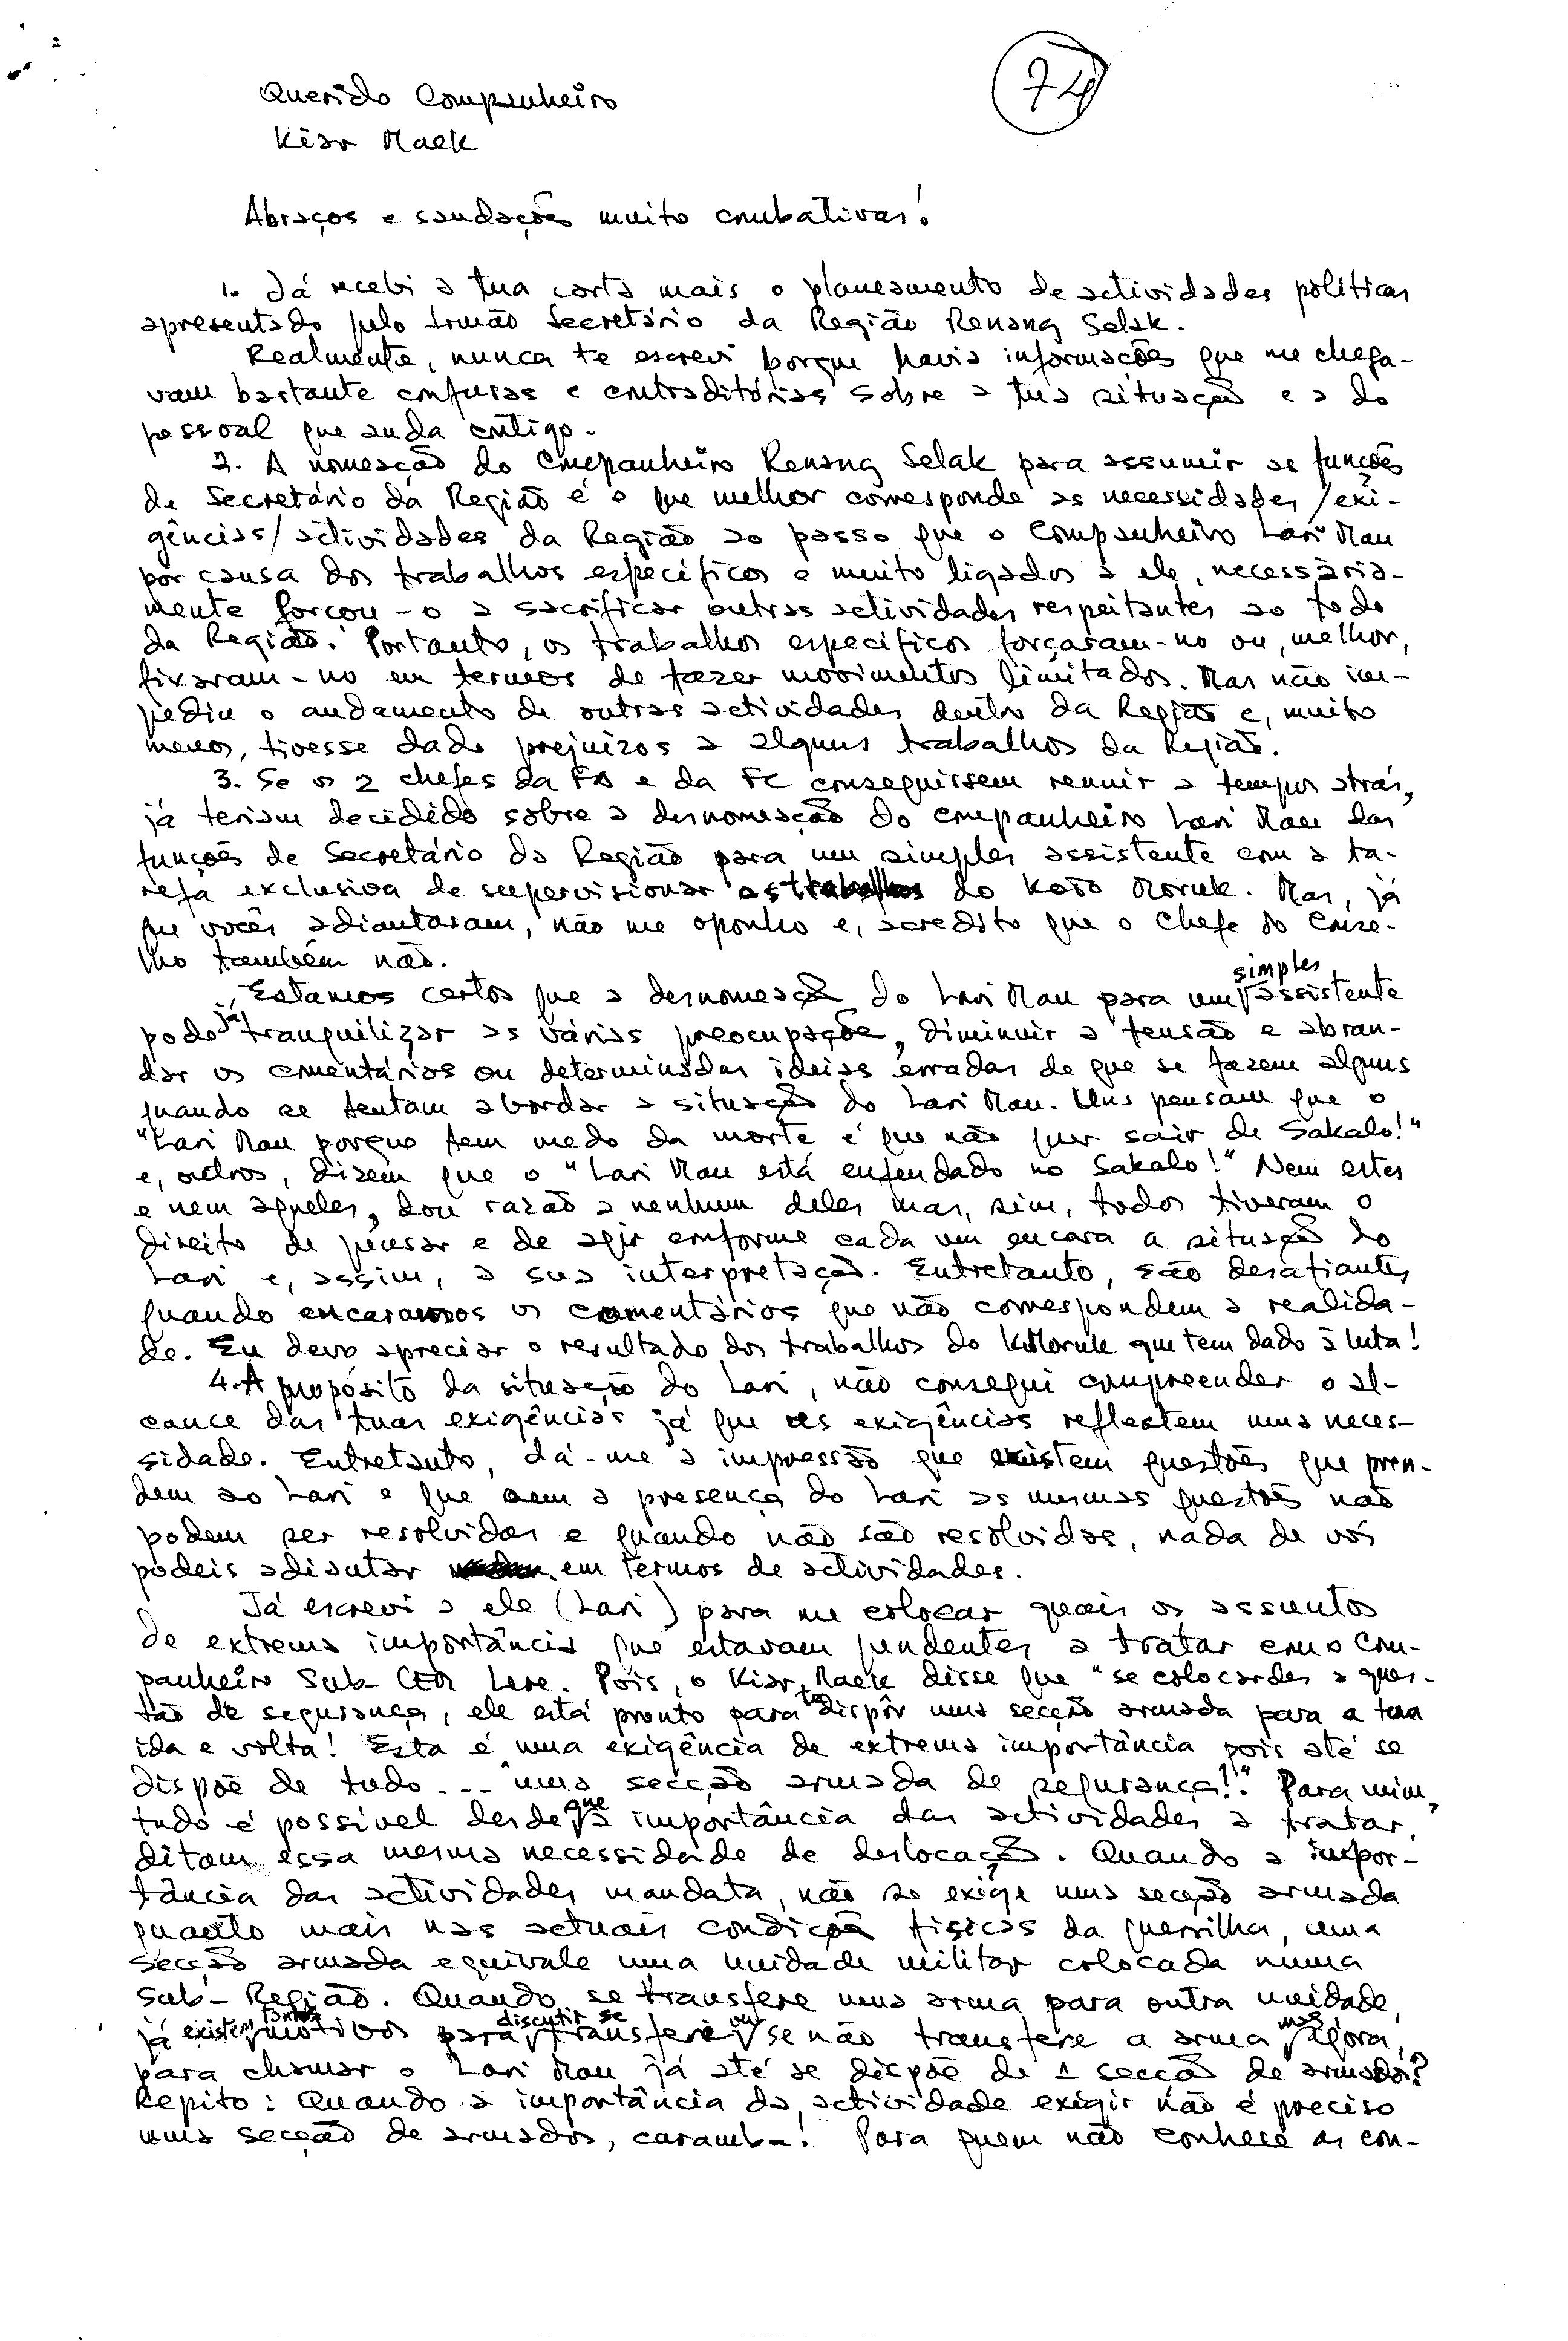 74
Querido Companheiro
Kiar Maek
Abraços e saudações muito combativas!
1. Já recebi a tua carta mais o planeamento de actividades políticas
apresentado pelo Irmão Secretário da Região Renang Selak.
Realmente, nunca te escrevi porque havia informações que me chega-
vam bastante confusas e contraditórias sobre a tua situação e a do
pessoal que anda contigo.
2. A nomeação do Companheiro Renang Selak para assumir as funções
de Secretário da Região é o que melhor corresponde as necessidades/exi-
gências/actividades da Região ao passo que o Companheiro Lari Mau
por causa dos trabalhos específicos e muito ligados a ele, necessària-
mente forçou-o a sacrificar outras actividades respeitantes ao todo
da Região. Portanto, os trabalhos específicos forçaram-no ou, melhor,
fixaram-no em termos de fazer movimentos limitados. Mas não im-
pediu o andamento de outras actividades dentro da Região e, muito
menos, tivesse dado prejuizos a alguns trabalhos da Região.
3. Se os 2 chefes da FA e da FC conseguissem reunir a tempos atrás,
já teriam decidido sobre a desnomeação do companheiro Lari Mau das
funções de Secretário da Região para um simples assistente com a ta-
refa exclusiva de supervisionar os trabalhos do Keto Moruk. Mas, já
que vocês adiantaram, não me oponho e, acredito que o Chefe do Conse-
lho também não.
Estamos certos que a desnomeação do Lari Mau para um simples assistente
pode já tranquilizar as várias preocupações, diminuir a tensão e abran-
dar os comentários ou determinadas ideias erradas de que se fazem alguns
quando se tentam abordar a situação do Lari Mau. Uns pensam que o
"Lari Mau porque tem medo da morte é que não quer sair de Sakalo!"
e, outros, dizem que o "Lari Mau está enfendado no Sakalo!" Nem estes
e nem aqueles, dou razão a nenhum deles mas, sim, todos tiveram o
direito de pensar e de agir conforme cada um encara a situação do
Lari e, assim, a sua interpretação. Entretanto, são desafiantes
quando encaramos os comentários que não correspondem a realida-
de. Eu devo apreciar o resultado dos trabalhos do K.Moruk que tem dado à luta!
4. A propósito da situação do Lari, não consegui compreender o al-
cance das tuas exigências já que as exigências reflectem uma neces-
sidade. Entretanto, dá-me a impressão que existem questões que pren-
dem ao Lari e que sem a presença do Lari as mesmas questões não
podem ser resolvidas e quando não são resolvidas, nada de vós
podeis adiantar em termos de actividades.
Já escrevi a ele (Lari) para me colocar quais os assuntos
de extrema importância que estavam pendentes a tratar com o Com-
panheiro Sub-CER Lere. Pois, o Kiar Maek disse que "se colocardes a ques-
tão de segurança, ele está pronto para te dispôr uma secção armada para a tua
ida e volta! Esta é uma exigência de extrema importância pois até se
dispõe de tudo... uma secção armada de segurança!". Para mim,
tudo é possível desde que a importância das actividades a tratar,
ditam essa mesma necessidade de deslocação. Quando a impor-
tância das actividades mandata, não se exige uma secção armada
quanto mais nas actuais condições físicas da guerrilha, uma
secção armada equivale uma unidade militar colocada numa
Sub-Região. Quando se transfere uma arma para outra unidade,
já existem tantos motivos para discutir se transfere ou se não transfere a arma mas agora,
para chamar o Lari Mau já até se dispõe de 1 secção de armados?
Repito: Quando a importância da actividade exigir não é preciso
uma secção de armados, caramba! Para quem não conhece as con-